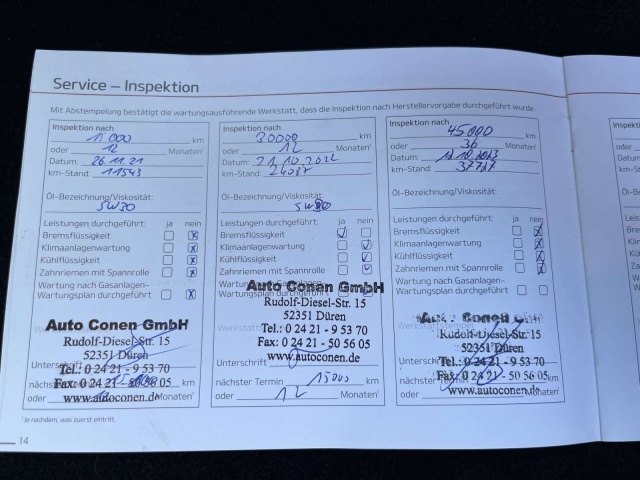 Service – Inspektion
Mit Abstempelung bestätigt die wartungsausführende Werkstatt, dass die Inspektion nach Herstellervorgabe durchgeführt wurde.
Inspektion nach
km
oder 12 Monaten¹
Datum: 26.11.21
km-Stand: 11543
Öl-Bezeichnung/Viskosität:
5W30
Leistungen durchgeführt: ja nein
Bremsflüssigkeit
Klimaanlagenwartung
Kühlflüssigkeit
Zahnriemen mit Spannrolle
Wartung nach Gasanlagen-
Wartungsplan durchgeführt
Auto Conen GmbH
Rudolf-Diesel-Str. 15
52351 Düren
Unterschrift
Tel.: 0 24 21 - 9 53 70
nächster
Fax: 0 24 21 - 50 56 05 km
www.autoconen.de
oder Monaten¹
Inspektion nach
30000 km
oder 12 Monaten¹
Datum: 21.10.2022
km-Stand: 24037
Öl-Bezeichnung/Viskosität:
Leistungen durchgeführt: ja nein
Bremsflüssigkeit
Klimaanlagenwartung
Kühlflüssigkeit
Zahnriemen mit Spannrolle
Wartung nach Gasanlagen-
Wartungsplan durchgeführt
Auto Conen GmbH
Rudolf-Diesel-Str. 15
52351 Düren
Tel.: 0 24 21 - 9 53 70
Fax: 0 24 21 - 50 56 05
www.autoconen.de
Unterschrift
nächster Termin 15000 km
oder 12 Monaten¹
Inspektion nach
45000 km
oder 36 Monaten¹
Datum:
km-Stand:
Öl-Bezeichnung/Viskosität:
Leistungen durchgeführt: ja nein
Bremsflüssigkeit
Klimaanlagenwartung
Kühlflüssigkeit
Zahnriemen mit Spannrolle
Wartung nach Gasanlagen-
Wartungsplan durchgeführt
Auto Conen GmbH
Rudolf-Diesel-Str. 15
52351 Düren
Unterschrift
Tel.: 0 24 21 - 9 53 70
nächster Termin
Fax: 0 24 21 - 50 56 05 km
www.autoconen.de
oder Monaten¹
¹ Je nachdem, was zuerst eintrifft.
14